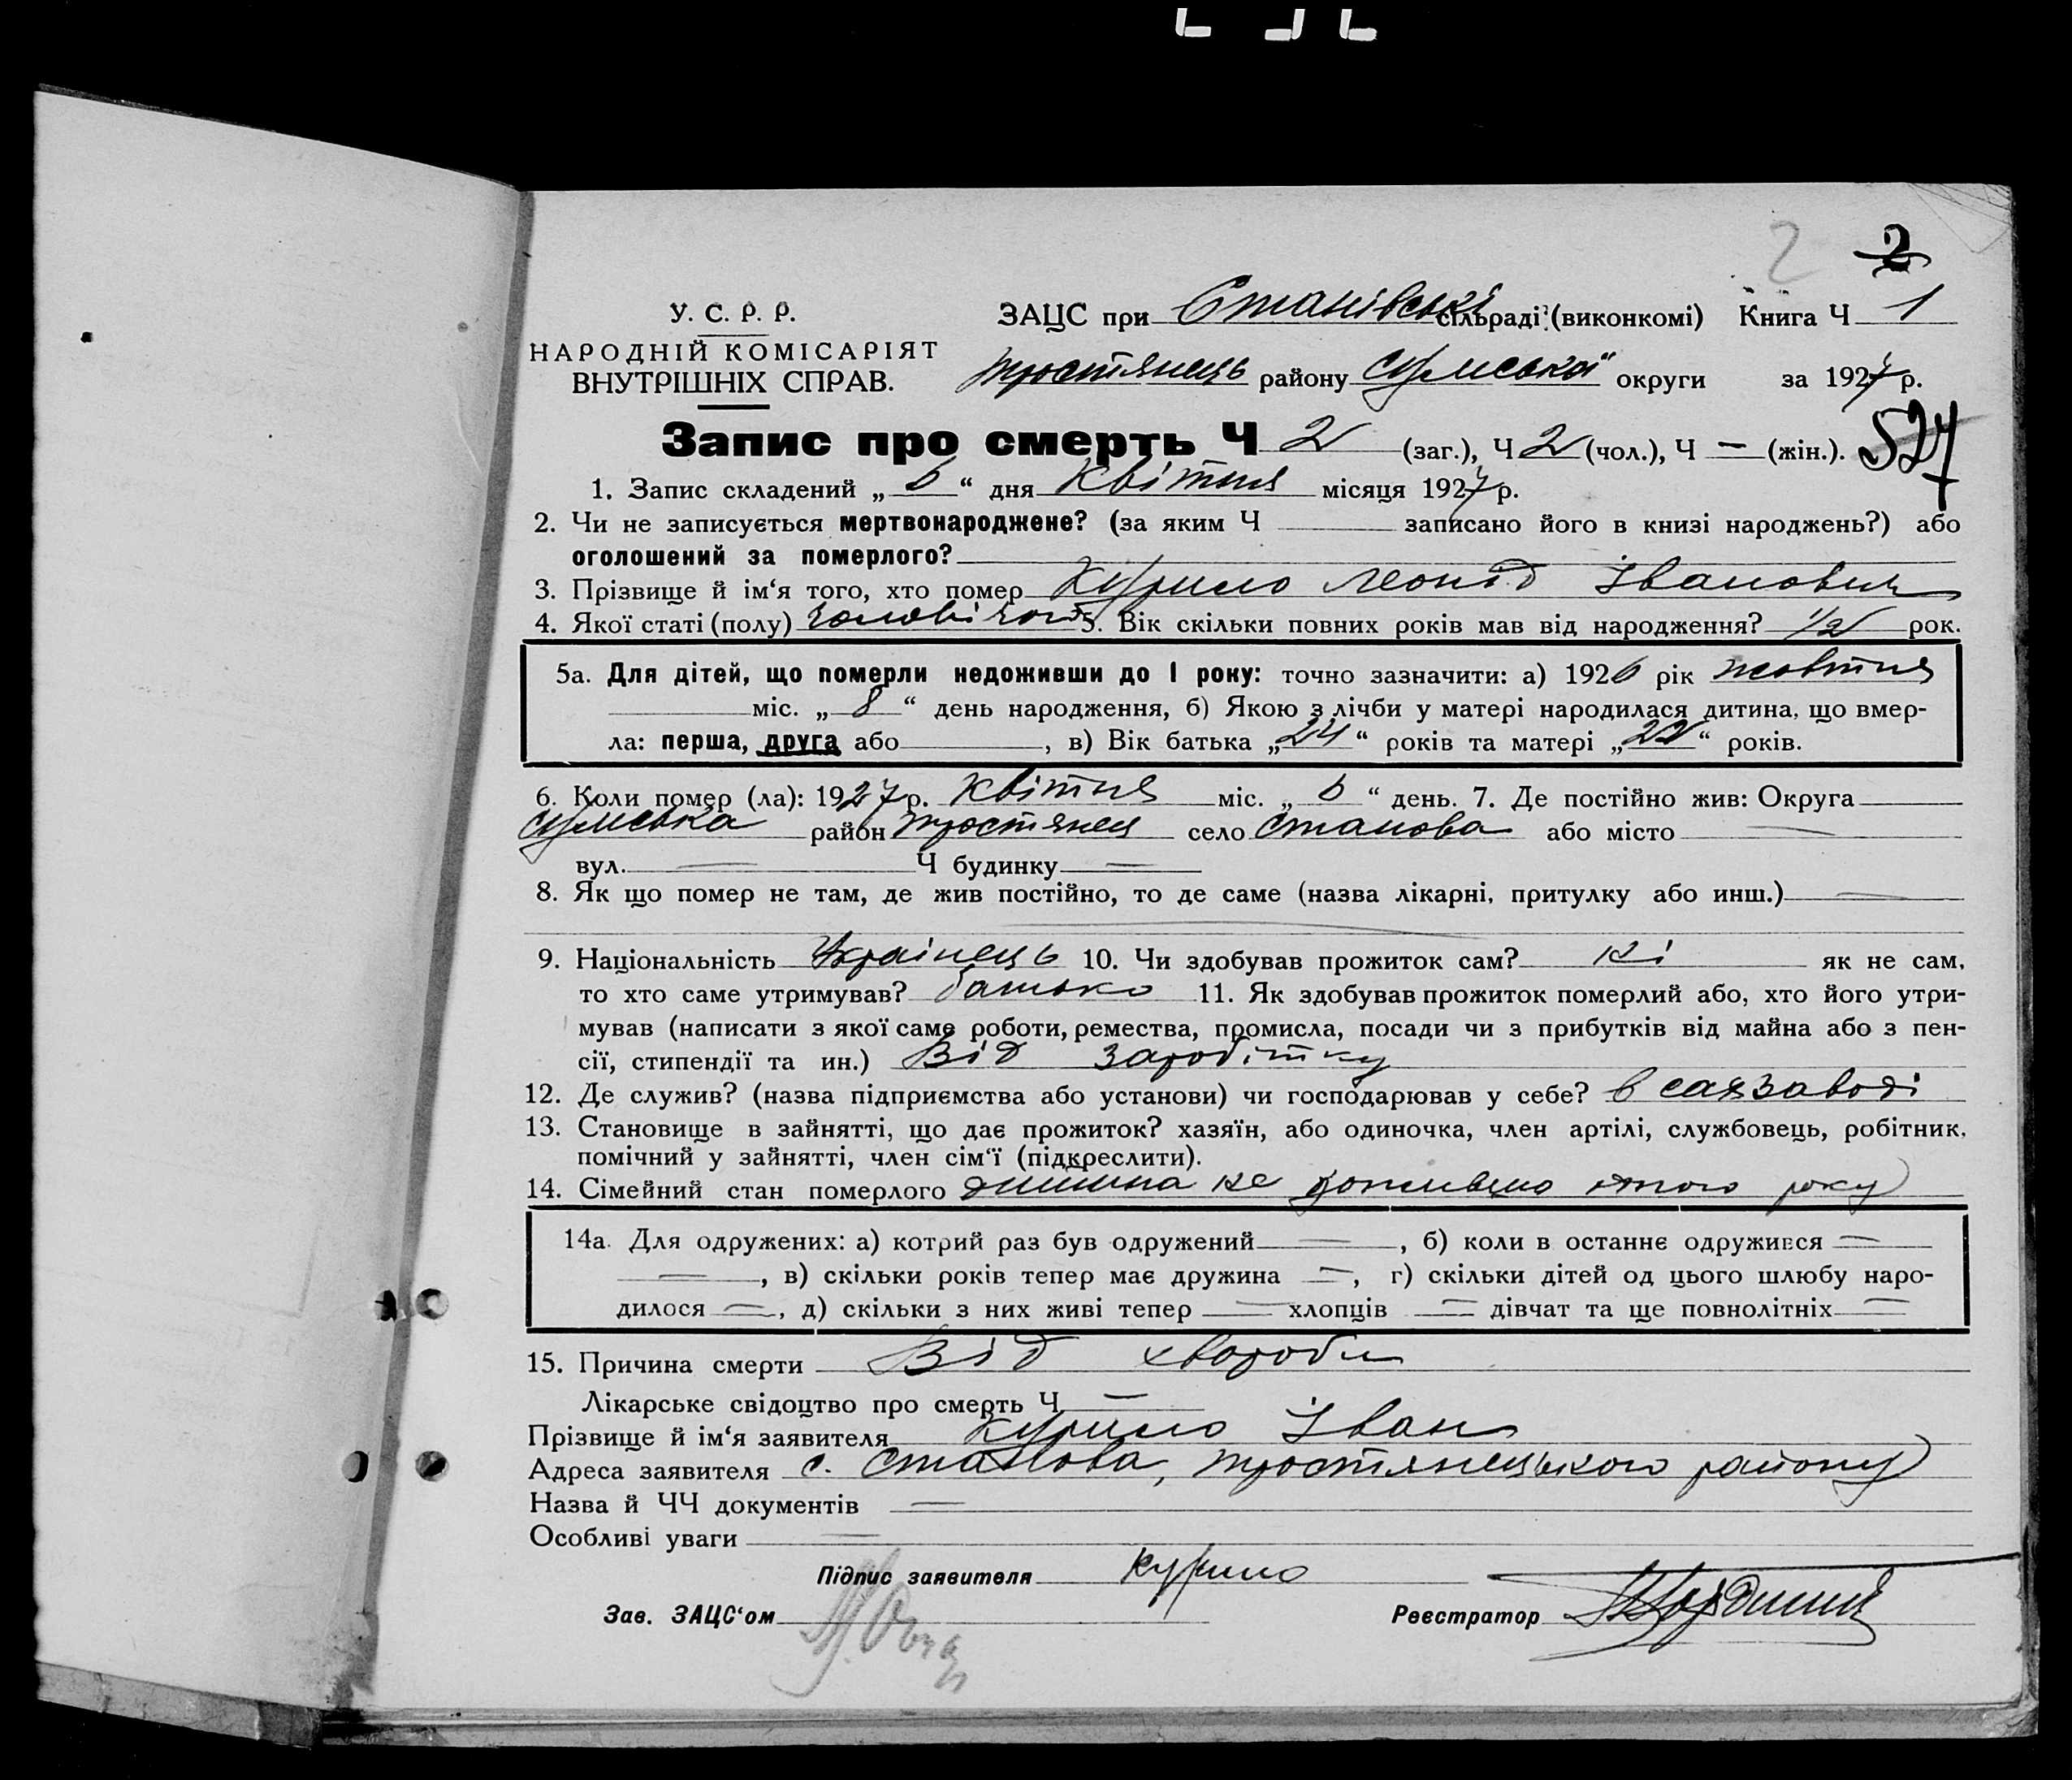 2 2
У. С. Р. Р.
НАРОДНІЙ КОМІСАРІЯТ
ВНУТРІШНІХ СПРАВ.
ЗАЦС при Станівські сільраді (виконкомі) Книга Ч 1
Тростянець району Сумської округи за 1927 р.
Запис про смерть Ч 2 (заг.), Ч 2 (чол.), Ч — (жін.).
527
1. Запис складений „ 6 “ дня Квітня місяця 1927 р.
2. Чи не записується мертвонароджене? (за яким Ч записано його в книзі народжень?) або
оголошений за померлого?
3. Прізвище й ім‘я того, хто помер Курило Леонід Іванович
4. Якої статі (полу) чоловічої 5. Вік скільки повних років мав від народження? 1/2 рок.
5а. Для дітей, що померли недоживши до 1 року: точно зазначити: а) 1926 рік жовтня
міс. „ 8 “ день народження, б) Якою з лічби у матері народилася дитина, що вмер-
ла: перша, друга або , в) Вік батька „ 24 “ років та матері „ 22 “ років.
6. Коли помер (ла): 1927 р. Квітня міс. „ 6 “ день. 7. Де постійно жив: Округа
Сумська район Тростянец село Станова або місто —
вул. — Ч будинку —
8. Як що помер не там, де жив постійно, то де саме (назва лікарні, притулку або инш.) —
9. Національність Українець 10. Чи здобував прожиток сам? ні як не сам,
то хто саме утримував? батько 11. Як здобував прожиток померлий або, хто його утри-
мував (написати з якої саме роботи, ремества, промисла, посади чи з прибутків від майна або з пен-
сії, стипендії та ин.) Від заробітку
12. Де служив? (назва підприємства або установи) чи господарював у себе? в сахзаводі
13. Становище в зайнятті, що дає прожиток? хазяїн, або одиночка, член артілі, службовець, робітник,
помічний у зайнятті, член сім‘ї (підкреслити).
14. Сімейний стан померлого дитина не дожившо року
14а. Для одружених: а) котрий раз був одружений — , б) коли в останнє одружився —
— , в) скільки років тепер має дружина — , г) скільки дітей од цього шлюбу наро-
дилося — , д) скільки з них живі тепер — хлопців — дівчат та ще повнолітніх —
15. Причина смерти Від хвороби
Лікарське свідоцтво про смерть Ч —
Прізвище й ім‘я заявителя Курило Іван
Адреса заявителя с. Станова, Тростянецького району
Назва й ЧЧ документів —
Особливі уваги —
Підпис заявителя Курило
Зав. ЗАЦС‘ом Реєстратор